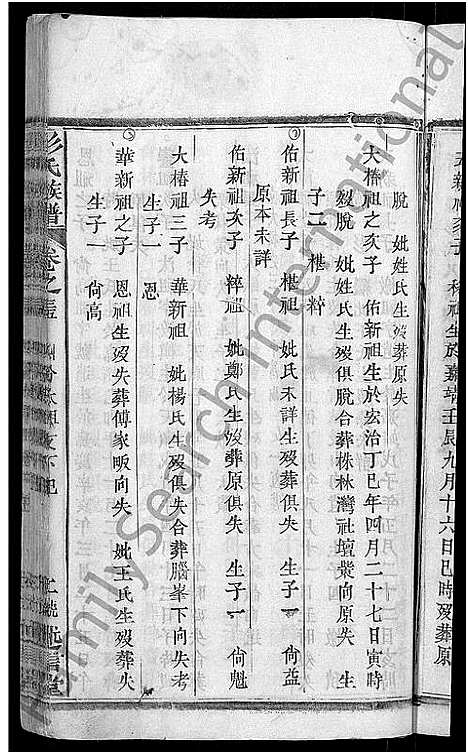 五新祖次子
祖生於嘉靖壬辰九月十六日巳時歿葬原
脫 妣姓氏生歿葬原失
大椿祖之次子 佑新祖生於宏治丁巳年四月二十七日寅時
歿脫 妣姓氏生歿俱脫合葬株林灣社壇紫向原失 生
子二 椹 粹
佑新祖長子 椹祖 妣氏未詳生歿葬失 生子一 尙益
原本未詳
佑新祖次子 粹祖 妣鄭氏生歿葬原俱失 生子一 尙魁
失考
大椿祖三子 華新祖 妣楊氏生歿俱失合葬腦峯下向失考
生子一 恩
華新祖之子 恩祖生歿失葬傅家畈向失 妣王氏生歿葬失
生子一 尙高
彭氏族譜 卷之
FamilySearch International